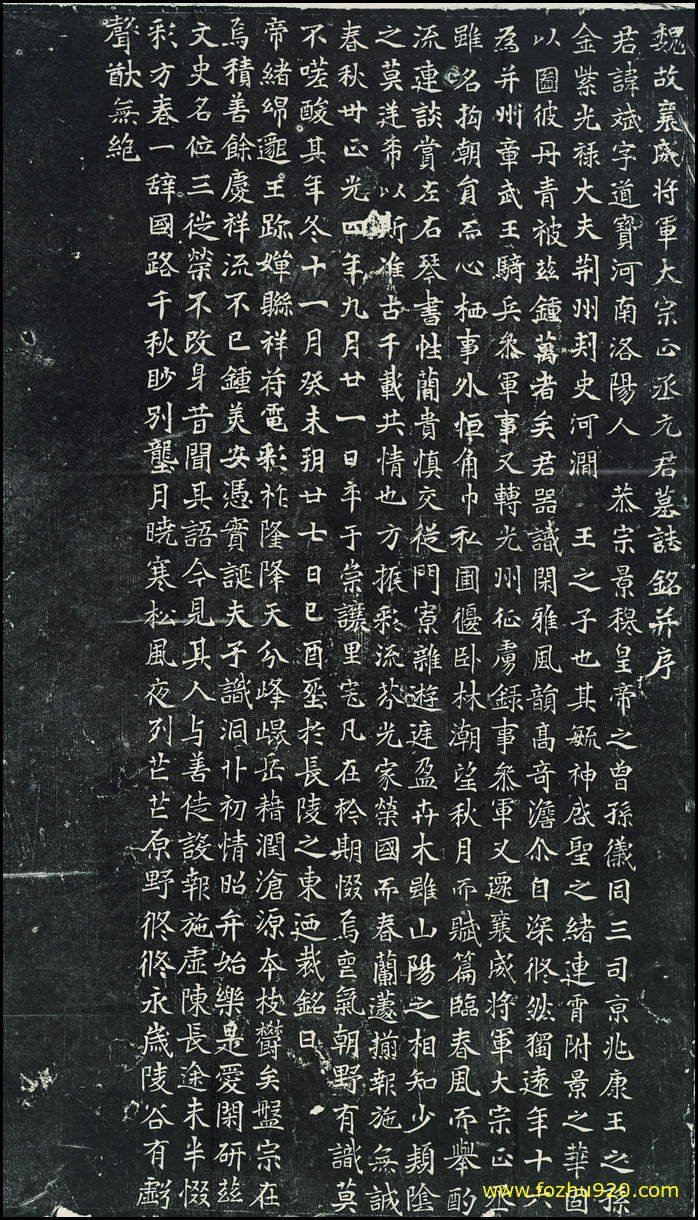 魏故襄威將軍大宗正丞元君墓誌銘并序
君諱斌字道寶河南洛陽人 恭宗景穆皇帝之曾孫儀同三司京兆康王之孫
金紫光祿大夫荊州刺史河澗 王之子也其毓神啟聖之緒連霄附景之華固
以圖彼丹青被茲鍾萬者矣君器識閑雅風韻高奇澹尒自深倐然獨遠年十六
為并州章武王騎兵參軍事又轉光州征虜錄事參軍又遷襄威將軍大宗正丞
雖名拘朝員而心栖事外恒角巾私圃偃臥林潮望秋月而賦篇臨春風而舉酌
流連談賞左右琴書性簡貴慎交從門寮雜遊庭盈卉木雖山陽之相知少頖陰
之莫逹希以斯准古千載共情也方振彩流芬光家榮國而春蘭蘧揃報施無誠
春秋卅正光四年九月廿一日卒于崇讓里宅凡在於期惙焉垔氣朝野有識莫
不嗟酸其年冬十一月癸未朔廿七日己酉窆於長陵之東迺裁銘曰
帝緒綿邈王跡嬋聯祥符電彩祚隆降天分峰㟝岳藉潤滄源本枝欝矣盤宗在
焉積善餘慶祥流不已鍾美安憑實誕夫子識洞卝初情昭弁始樂是愛閑研茲
文史名位三徙榮不改身昔聞其語今見其人与善徒設報施虛陳長途未半惙
彩方春一辞國路千秋眇別壟月曉寒松風夜列芒芒原野倐倐永歲陵谷有虧
聲猷無絕
www.fozhu920.com